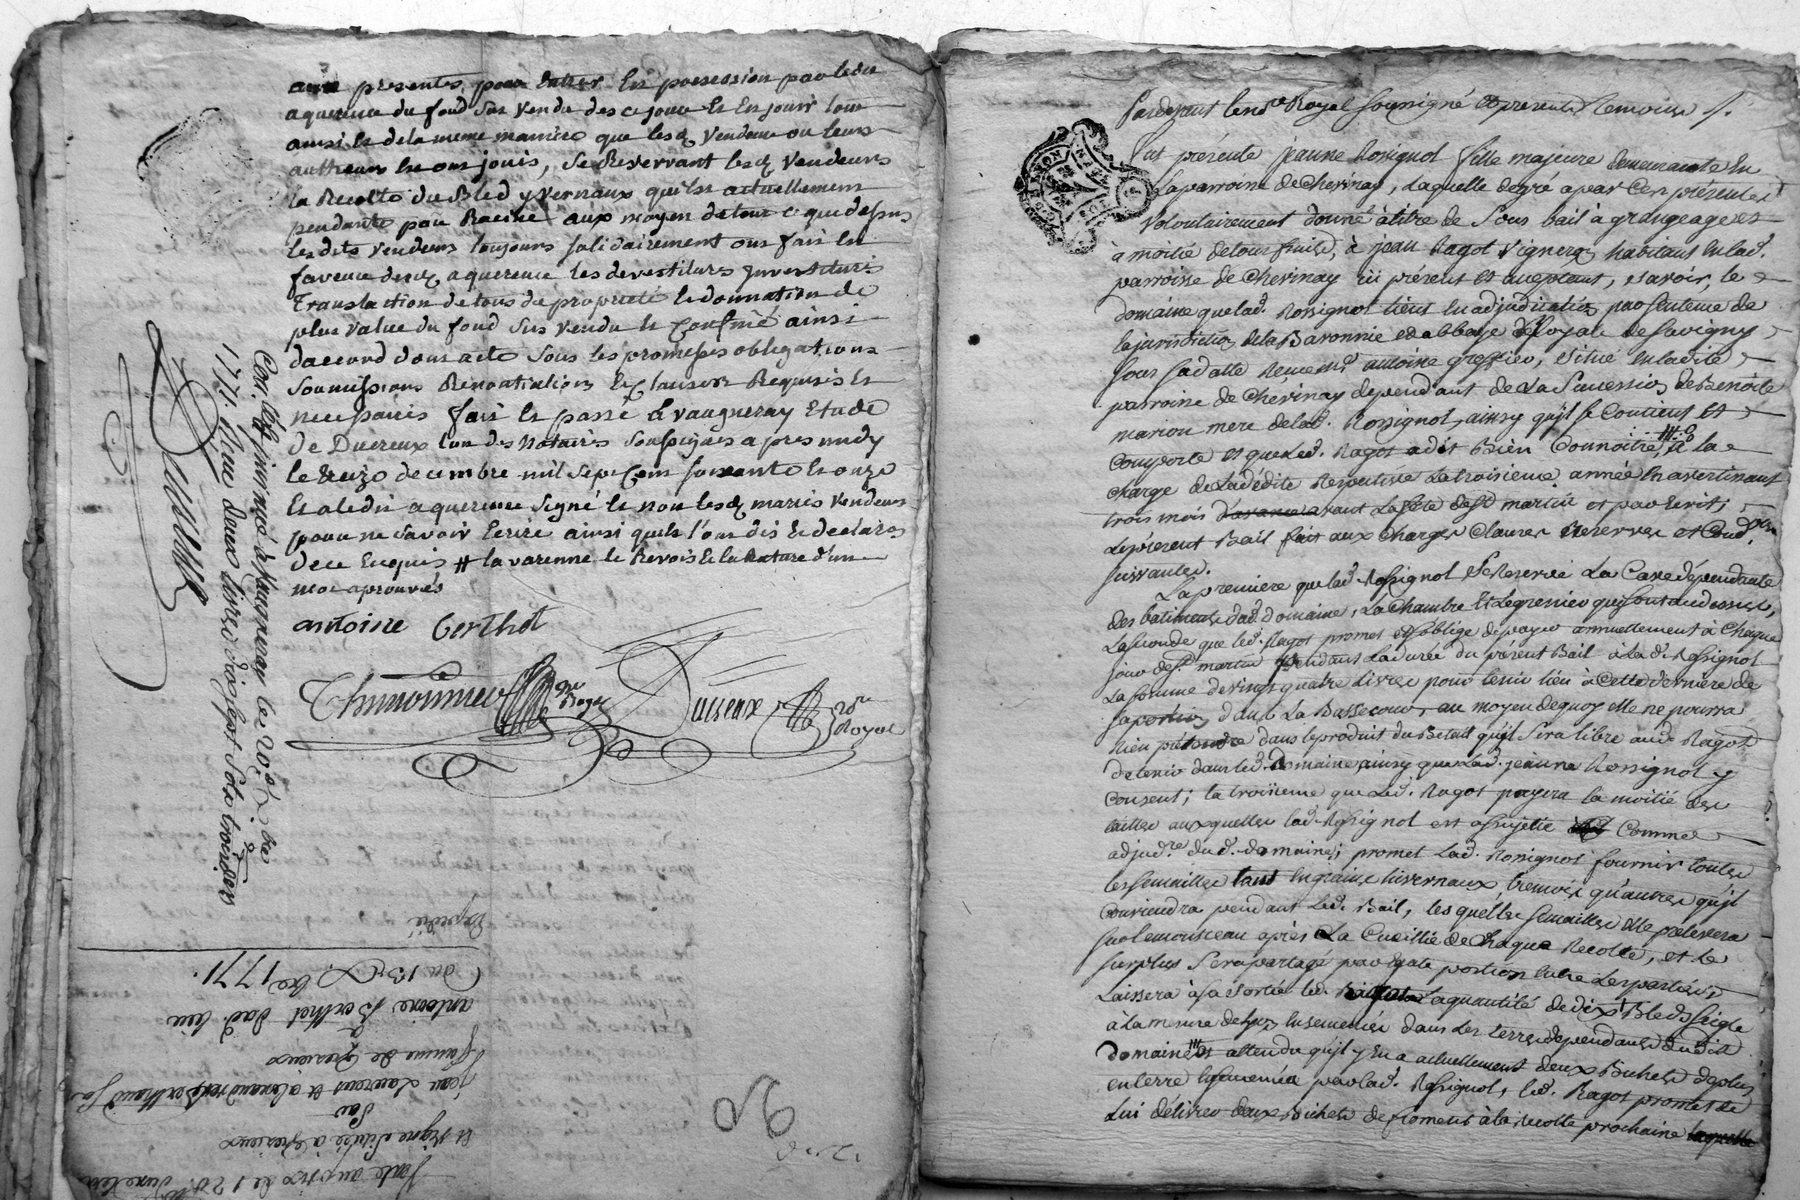 aux presentes, pour Entrer En possession par ledit
aquereur du fond Sus vendu des ce jour Et En jouir tout
ainsi Et de la meme maniere que lesd. Vendeurs ou leurs
autheurs En ont jouis, Se Reservant lesd. Vendeurs
la Recolte du Bled yvernaux qui Est actuellement
pendante par Racine aux moyen de tout ce que dessus
les dits vendeurs toujours solidairement ont fait En
faveur dud. aquereur les devestitures Investitures
Translaction de tous de proprieté Et donnation de
plus value du fond Sus vendu Et Confiné ainsi
daccord dont acte Sous les promesses obligations
Soumissions Renontiations Et Clauses Requises Et
necessaires fait Et passé à vaugneray Etude
de Ducreux l'un des Notaires Soussignés apres midy
le treize decembre mil Sept Cent soixante Et onze
Et a ledit aquereur Signé Et non lesd. mariés Vendeurs
pour ne savoir Ecrire ainsi quils l'ont dit Et declaré
de ce Enquis # la varenne le Revois Et la Rature d'un
mot aprouvés
antoine Berthot
Ducreux
no.re Royal
1771. Reçu deux livres dix sept sols trois den.
Expedié
du 13 X.bre 1771.
antoine Berthet dud. lieu
à
femme de Grezieux
jean Laurent Et
Par
Et vigne Située à Grezieux
Vente au prix de 120.tt
Pardevant le no.re Royal soussigné & presents temoins /.
fut présente jeanne Rossignol fille majeure demeurante En
la parroisse de Chevinay, laquelle de gré a par Ces présentes
Volontairement donné à titre de Sous bail à grangeage et
à moitié de tous fruits, à jean Ragot Vigneron habitant En lad.
parroisse de Chevinay ici présent Et aceptant, Savoir, le
domaine que lad. Rossignol tient En adjudication par Sentence de
la jurisdiction de la Baronnie Et abbaye Royale de Savigny
Sous sa datte Receue M.e antoine situé En ladite
parroisse de Chevinay dependant de La Succession de Benoite
marion mere de lad. Rossignol, ainsy qu'il se Contient Et
Comporte et que led. Ragot a dit Bien Connoitre, à la
Charge de La dédite Respective La troisieme année En avertissant
trois mois avant La fête de S.t martin et par Ecrit;
Le présent Bail fait aux Charges Clauses Reserves et Cond.ons
Suivantes.
La premiere que lad. Rossignol Se Reserve La Cave dépendante
des batiments dud. domaine, La Chambre Et Le grenier qui sont au dessus,
La seconde que led. Ragot promet Et s'oblige de payer annuellement à Chaque
jour de S.t martin pendant La durée du présent Bail à La d. Rossignol
La Somme de vingt quatre Livres pour tenir lieu à Cette derniere de
sa portion dans La Bassecour, au moyen de quoy Elle ne pourra
Rien prétendre dans le produit du Betail qu'il Sera libre aud. Ragot
de tenir dans led. Domaine, ainsy que lad. jeanne Rossignol y
Consent; la troisieme que Led. Ragot payera la moitié des
tailles auxquelles lad. Rossignol est assujetie Comme
adjud.re dud. domaine; promet Lad. Rossignol fournir toutes
les semailles tant En grains hivernaux, tremois qu'autres qu'il
Conviendra pendant Led. Bail, les quelles semailles Elle prelevera
Sur le mousseau après La Cueillie de Chaque Recolte, et le
Surplus Sera partagé par égale portion Entre Les parties;
Laissera à sa Sortie led. Ragot la quantité de dix Bleds seigle
à la mesure de Ensemencés dans Les terres dependantes dudit
domaine, Et attendu qu'il y En a actuellement deux Bichets de plus
en terre Ensemencés par lad. Rossignol, led. Ragot promet de
Lui délivrer deux Bichets de froment à la Recolte prochaine